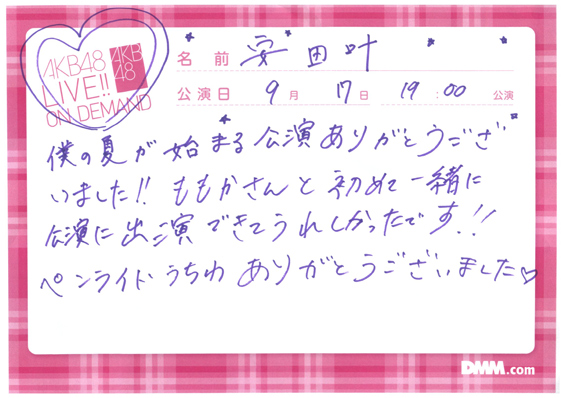 AKB48
LIVE!!
ON DEMAND
AKB
48
名前 安田叶
公演日 9月 17日 19:00 公演
僕の夏が始まる公演ありがとうござ
いました!! ももかさんと初めて一緒に
公演に出演できてうれしかったです!!
ペンライトうちわ ありがとうございました♡
DMM.com